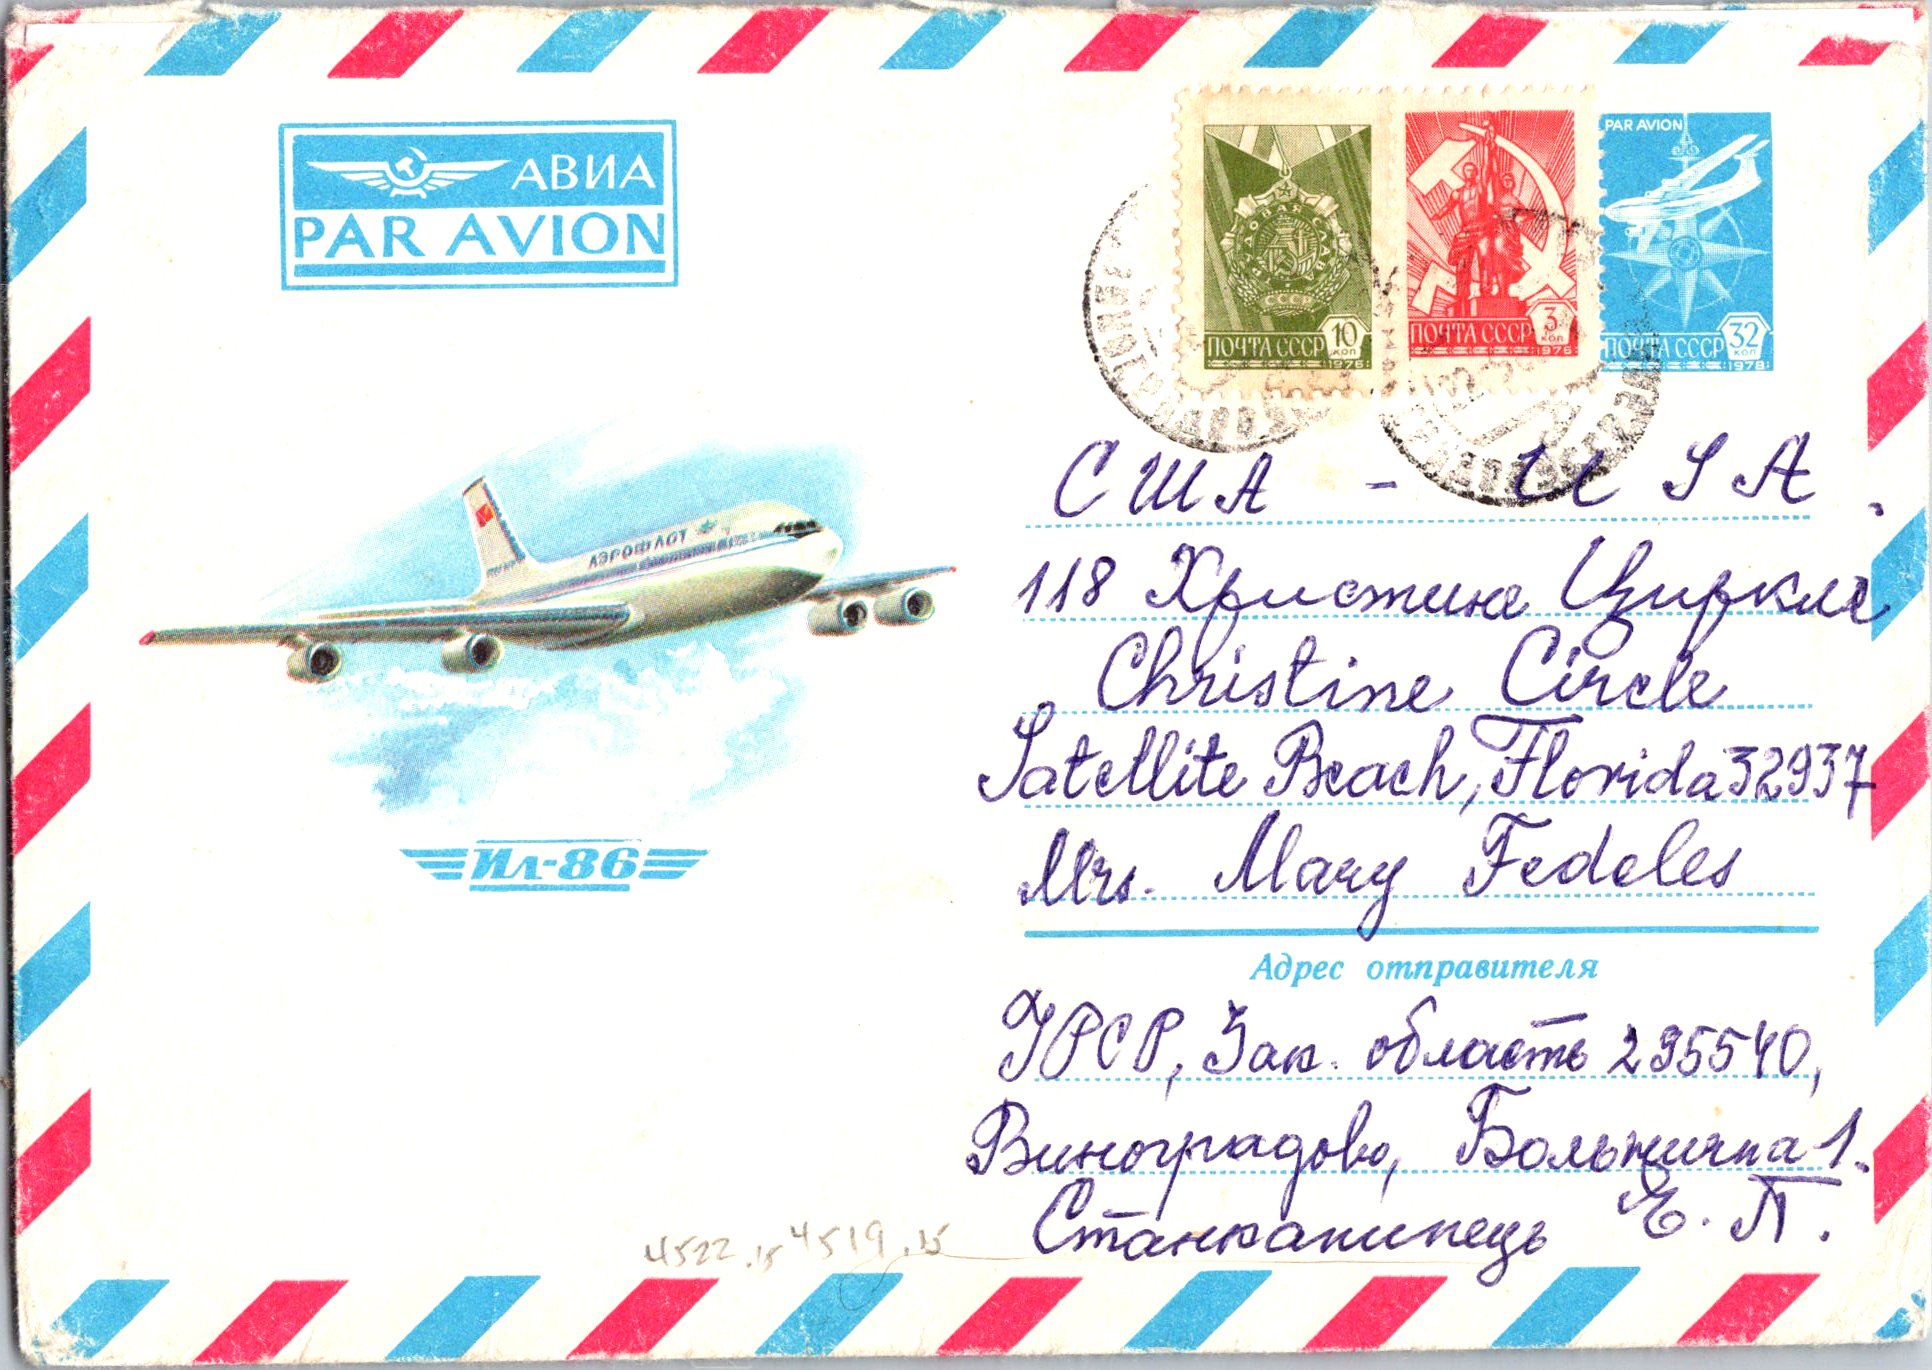 АВИА
PAR AVION
ТРУДОВАЯ СЛАВА
СССР
ПОЧТА СССР 10 КОП
1976
ПОЧТА СССР 3 КОП
1976
PAR AVION
ПОЧТА СССР 32 КОП
1978
АЭРОФЛОТ
Ил-86
США - USA.
118 Христине Циркле
Christine Circle
Satellite Beach, Florida 32937
Mrs. Mary Fedeles
Адрес отправителя
УРСР, Зак. область 295540,
Виноградово, Больнична 1.
Станканинець Є. П.
4522.15 4519.15